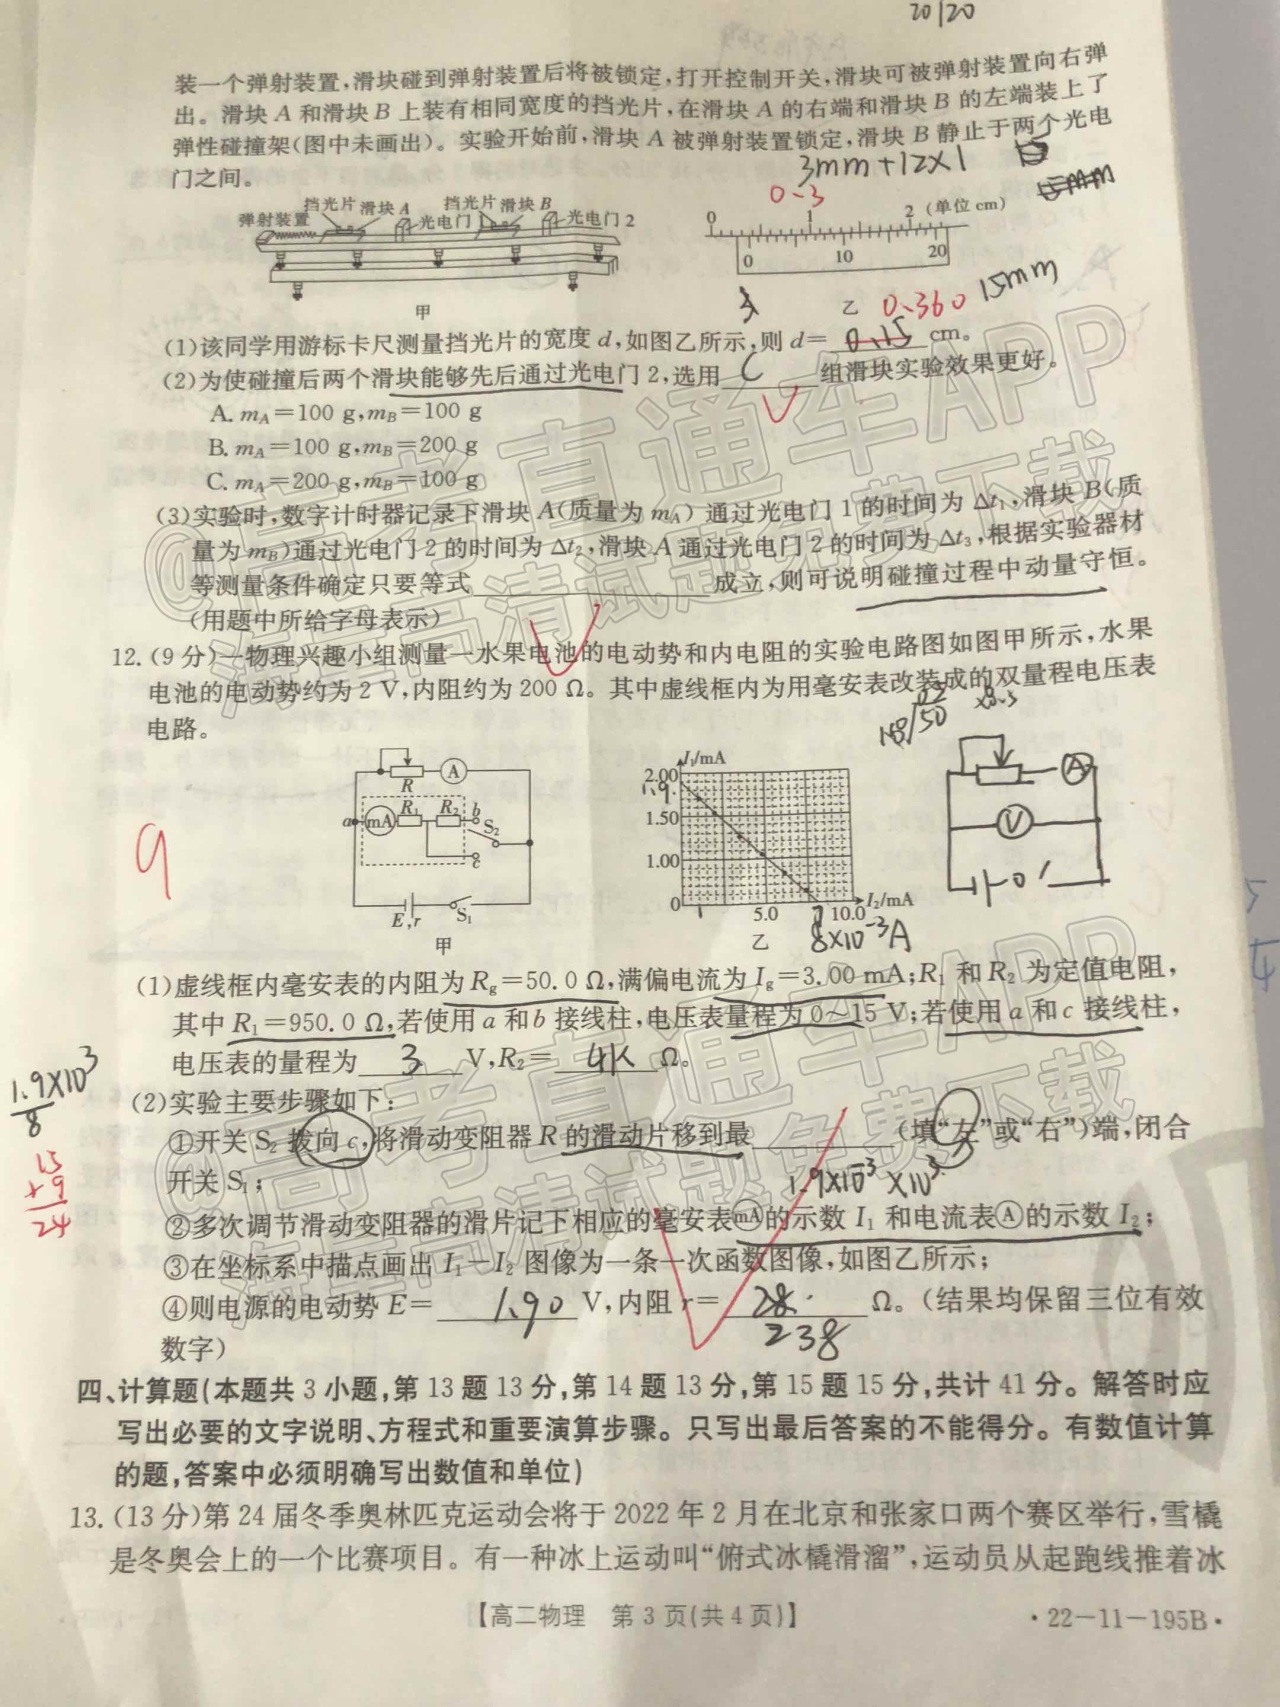 20/20
装一个弹射装置,滑块碰到弹射装置后将被锁定,打开控制开关,滑块可被弹射装置向右弹
出。滑块 A 和滑块 B 上装有相同宽度的挡光片,在滑块 A 的右端和滑块 B 的左端装上了
弹性碰撞架(图中未画出)。实验开始前,滑块 A 被弹射装置锁定,滑块 B 静止于两个光电
门之间。
3mm+12×1
15mm
0.3
弹射装置 挡光片 滑块 A 光电门 1 挡光片 滑块 B 光电门 2
0 1 2 (单位 cm)
0 10 20
甲
乙
0.360
15mm
(1)该同学用游标卡尺测量挡光片的宽度 d,如图乙所示,则 d= 0.15 cm。
(2)为使碰撞后两个滑块能够先后通过光电门 2,选用 C 组滑块实验效果更好。
A. mA=100 g,mB=100 g
B. mA=100 g,mB=200 g
C. mA=200 g,mB=100 g
(3)实验时,数字计时器记录下滑块 A(质量为 mA)通过光电门 1 的时间为 Δt1,滑块 B(质
量为 mB)通过光电门 2 的时间为 Δt2,滑块 A 通过光电门 2 的时间为 Δt3,根据实验器材
等测量条件确定只要等式 成立,则可说明碰撞过程中动量守恒。
(用题中所给字母表示)
12. (9 分)一物理兴趣小组测量一水果电池的电动势和内电阻的实验电路图如图甲所示,水果
电池的电动势约为 2 V,内阻约为 200 Ω。其中虚线框内为用毫安表改装成的双量程电压表
电路。
9
R A
a mA R1 R2 b S2
c
E,r S1
甲
I1/mA
2.00
1.9
1.50
1.00
0 5.0 10.0 I2/mA
乙
8×10⁻³A
A
V
(1)虚线框内毫安表的内阻为 Rg=50.0 Ω,满偏电流为 Ig=3.00 mA;R1 和 R2 为定值电阻,
其中 R1=950.0 Ω,若使用 a 和 b 接线柱,电压表量程为 0~15 V;若使用 a 和 c 接线柱,
电压表的量程为 3 V,R2= 4k Ω。
1.9×10³
8
15
+9
24
(2)实验主要步骤如下:
①开关 S2 拨向 c,将滑动变阻器 R 的滑动片移到最 (填“左”或“右”)端,闭合
开关 S1;
1.9×10⁻³×10³
②多次调节滑动变阻器的滑片记下相应的毫安表mA的示数 I1 和电流表A的示数 I2;
③在坐标系中描点画出 I1-I2 图像为一条一次函数图像,如图乙所示;
④则电源的电动势 E= 1.90 V,内阻 r= Ω。(结果均保留三位有效
238
数字)
四、计算题(本题共 3 小题,第 13 题 13 分,第 14 题 13 分,第 15 题 15 分,共计 41 分。解答时应
写出必要的文字说明、方程式和重要演算步骤。只写出最后答案的不能得分。有数值计算
的题,答案中必须明确写出数值和单位)
13. (13 分)第 24 届冬季奥林匹克运动会将于 2022 年 2 月在北京和张家口两个赛区举行,雪橇
是冬奥会上的一个比赛项目。有一种冰上运动叫“俯式冰橇滑溜”,运动员从起跑线推着冰
【高二物理 第 3 页(共 4 页)】
·22-11-195B·
@高考直通车APP
海量高清试题免费下载
@高考直通车APP
海量高清试题免费下载